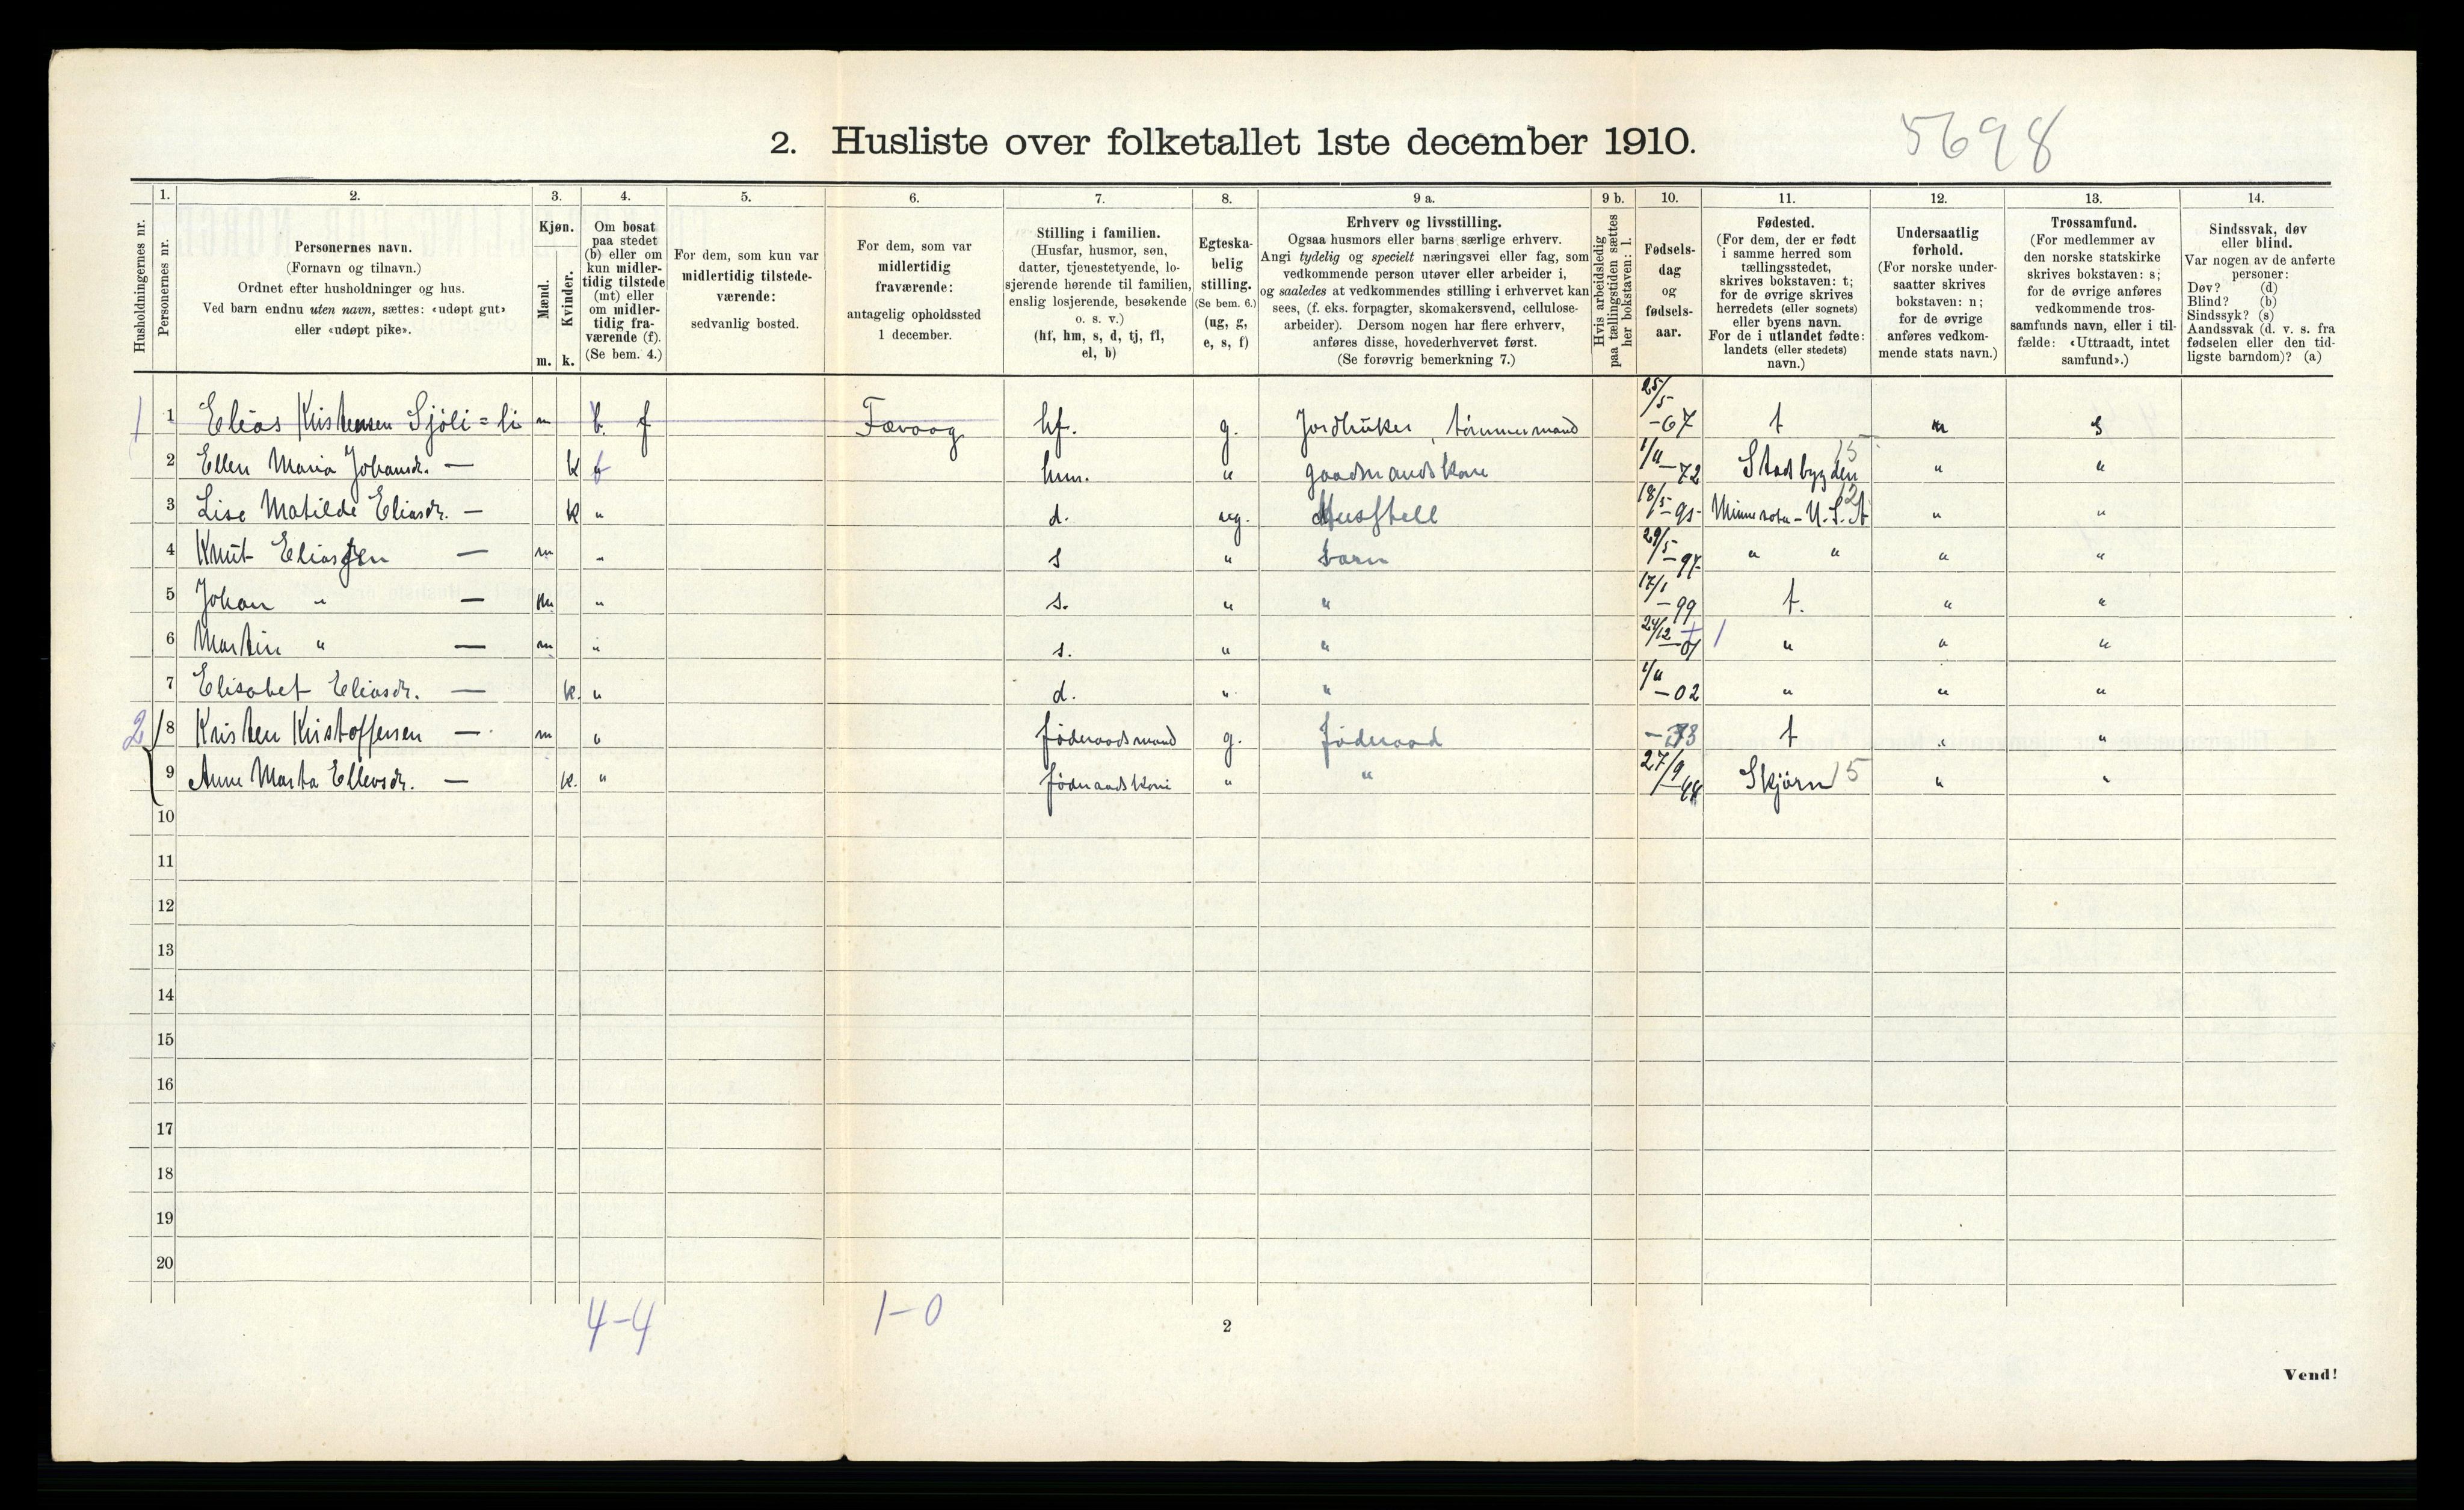 2. Husliste over folketallet 1ste december 1910.
5698
Husholdningernes nr.
1.
Personernes nr.
2.
Personernes navn.
(Fornavn og tilnavn.)
Ordnet efter husholdninger og hus.
Ved barn endnu uten navn, sættes: «udøpt gut»
eller «udøpt pike».
3.
Kjøn.
Mænd.
Kvinder.
m. k.
4.
Om bosat
paa stedet
(b) eller om
kun midler-
tidig tilstede
(mt) eller
om midler-
tidig fra-
værende (f).
(Se bem. 4.)
5.
For dem, som kun var
midlertidig tilstede-
værende:
sedvanlig bosted.
6.
For dem, som var
midlertidig
fraværende:
antagelig opholdssted
1 december.
7.
Stilling i familien.
(Husfar, husmor, søn,
datter, tjenestetyende, lo-
sjerende hørende til familien,
enslig losjerende, besøkende
o. s. v.)
(hf, hm, s, d, tj, fl,
el, b)
8.
Egteska-
belig
stilling.
(Se bem. 6.)
(ug, g,
e, s, f)
9 a.
Erhverv og livsstilling.
Ogsaa husmors eller barns særlige erhverv.
Angi tydelig og specielt næringsvei eller fag, som
vedkommende person utøver eller arbeider i,
og saaledes at vedkommendes stilling i erhvervet kan
sees, (f. eks. forpagter, skomakersvend, cellulose-
arbeider). Dersom nogen har flere erhverv,
anføres disse, hovederhvervet først.
(Se forøvrig bemerkning 7.)
9 b.
Hvis arbeidsledig
paa tællingstiden sættes
her bokstaven: l.
10.
Fødsels-
dag
og
fødsels-
aar.
11.
Fødested.
(For dem, der er født
i samme herred som
tællingsstedet,
skrives bokstaven: t;
for de øvrige skrives
herredets (eller sognets)
eller byens navn.
For de i utlandet fødte:
landets (eller stedets)
navn.)
12.
Undersaatlig
forhold.
(For norske under-
saatter skrives
bokstaven: n;
for de øvrige
anføres vedkom-
mende stats navn.)
13.
Trossamfund.
(For medlemmer av
den norske statskirke
skrives bokstaven: s;
for de øvrige anføres
vedkommende tros-
samfunds navn, eller i til-
fælde: «Uttraadt, intet
samfund».)
14.
Sindssvak, døv
eller blind.
Var nogen av de anførte
personer:
Døv? (d)
Blind? (b)
Sindssyk? (s)
Aandssvak (d. v. s. fra
fødselen eller den tid-
ligste barndom)? (a)
1 1 Elias Kristensen Sjöli = li m b. f Fævaag hf. g. Jordbruker, tømmermand 25/5-67 t n s
2 Ellen Maria Johansdr. — k b hm. " gaardmandskone 1/11-72 Stadsbygden 15 " "
3 Lise Matilde Eliasdr. — k " d. ug. Husstell 18/5-95 Minnesota - U.S.A " "
4 Knut Eliassen — m " s " barn 29/5-97 " " " "
5 Johan " — m " s. " " 17/1-99 t. " "
6 Martin " — m " s. " " 24/12-01 1 " " "
7 Elisabet Eliasdr. — k. " d. " " 1/11-02 " " "
2 8 Kristen Kristoffersen — m b føderaadsmand g. føderaad t " "
9 Anne Marta Ellevsdr. — k. " føderaadskone " " 27/9-44 Skjørn 15 " "
10
11
12
13
14
15
16
17
18
19
20
4-4
1-0
2
Vend!